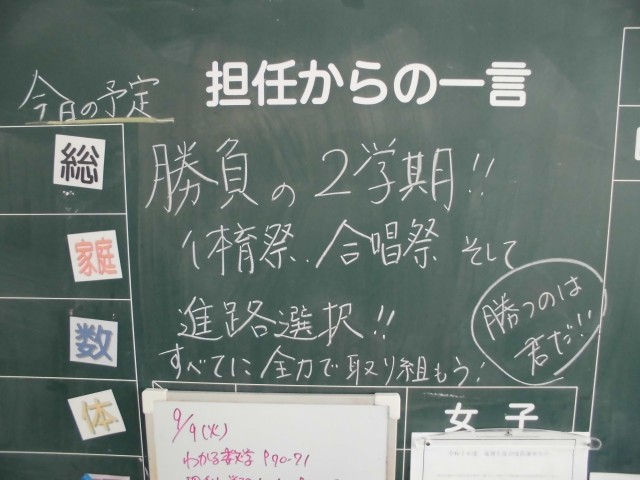 今日の予定
担任からの一言
総
家庭
数
体
勝負の2学期!!
体育祭.合唱祭 そして
進路選択!!
すべてに全力で取り組もう!
勝つのは
君だ!!
女子
9/9(火)
わかる数学 P70-71